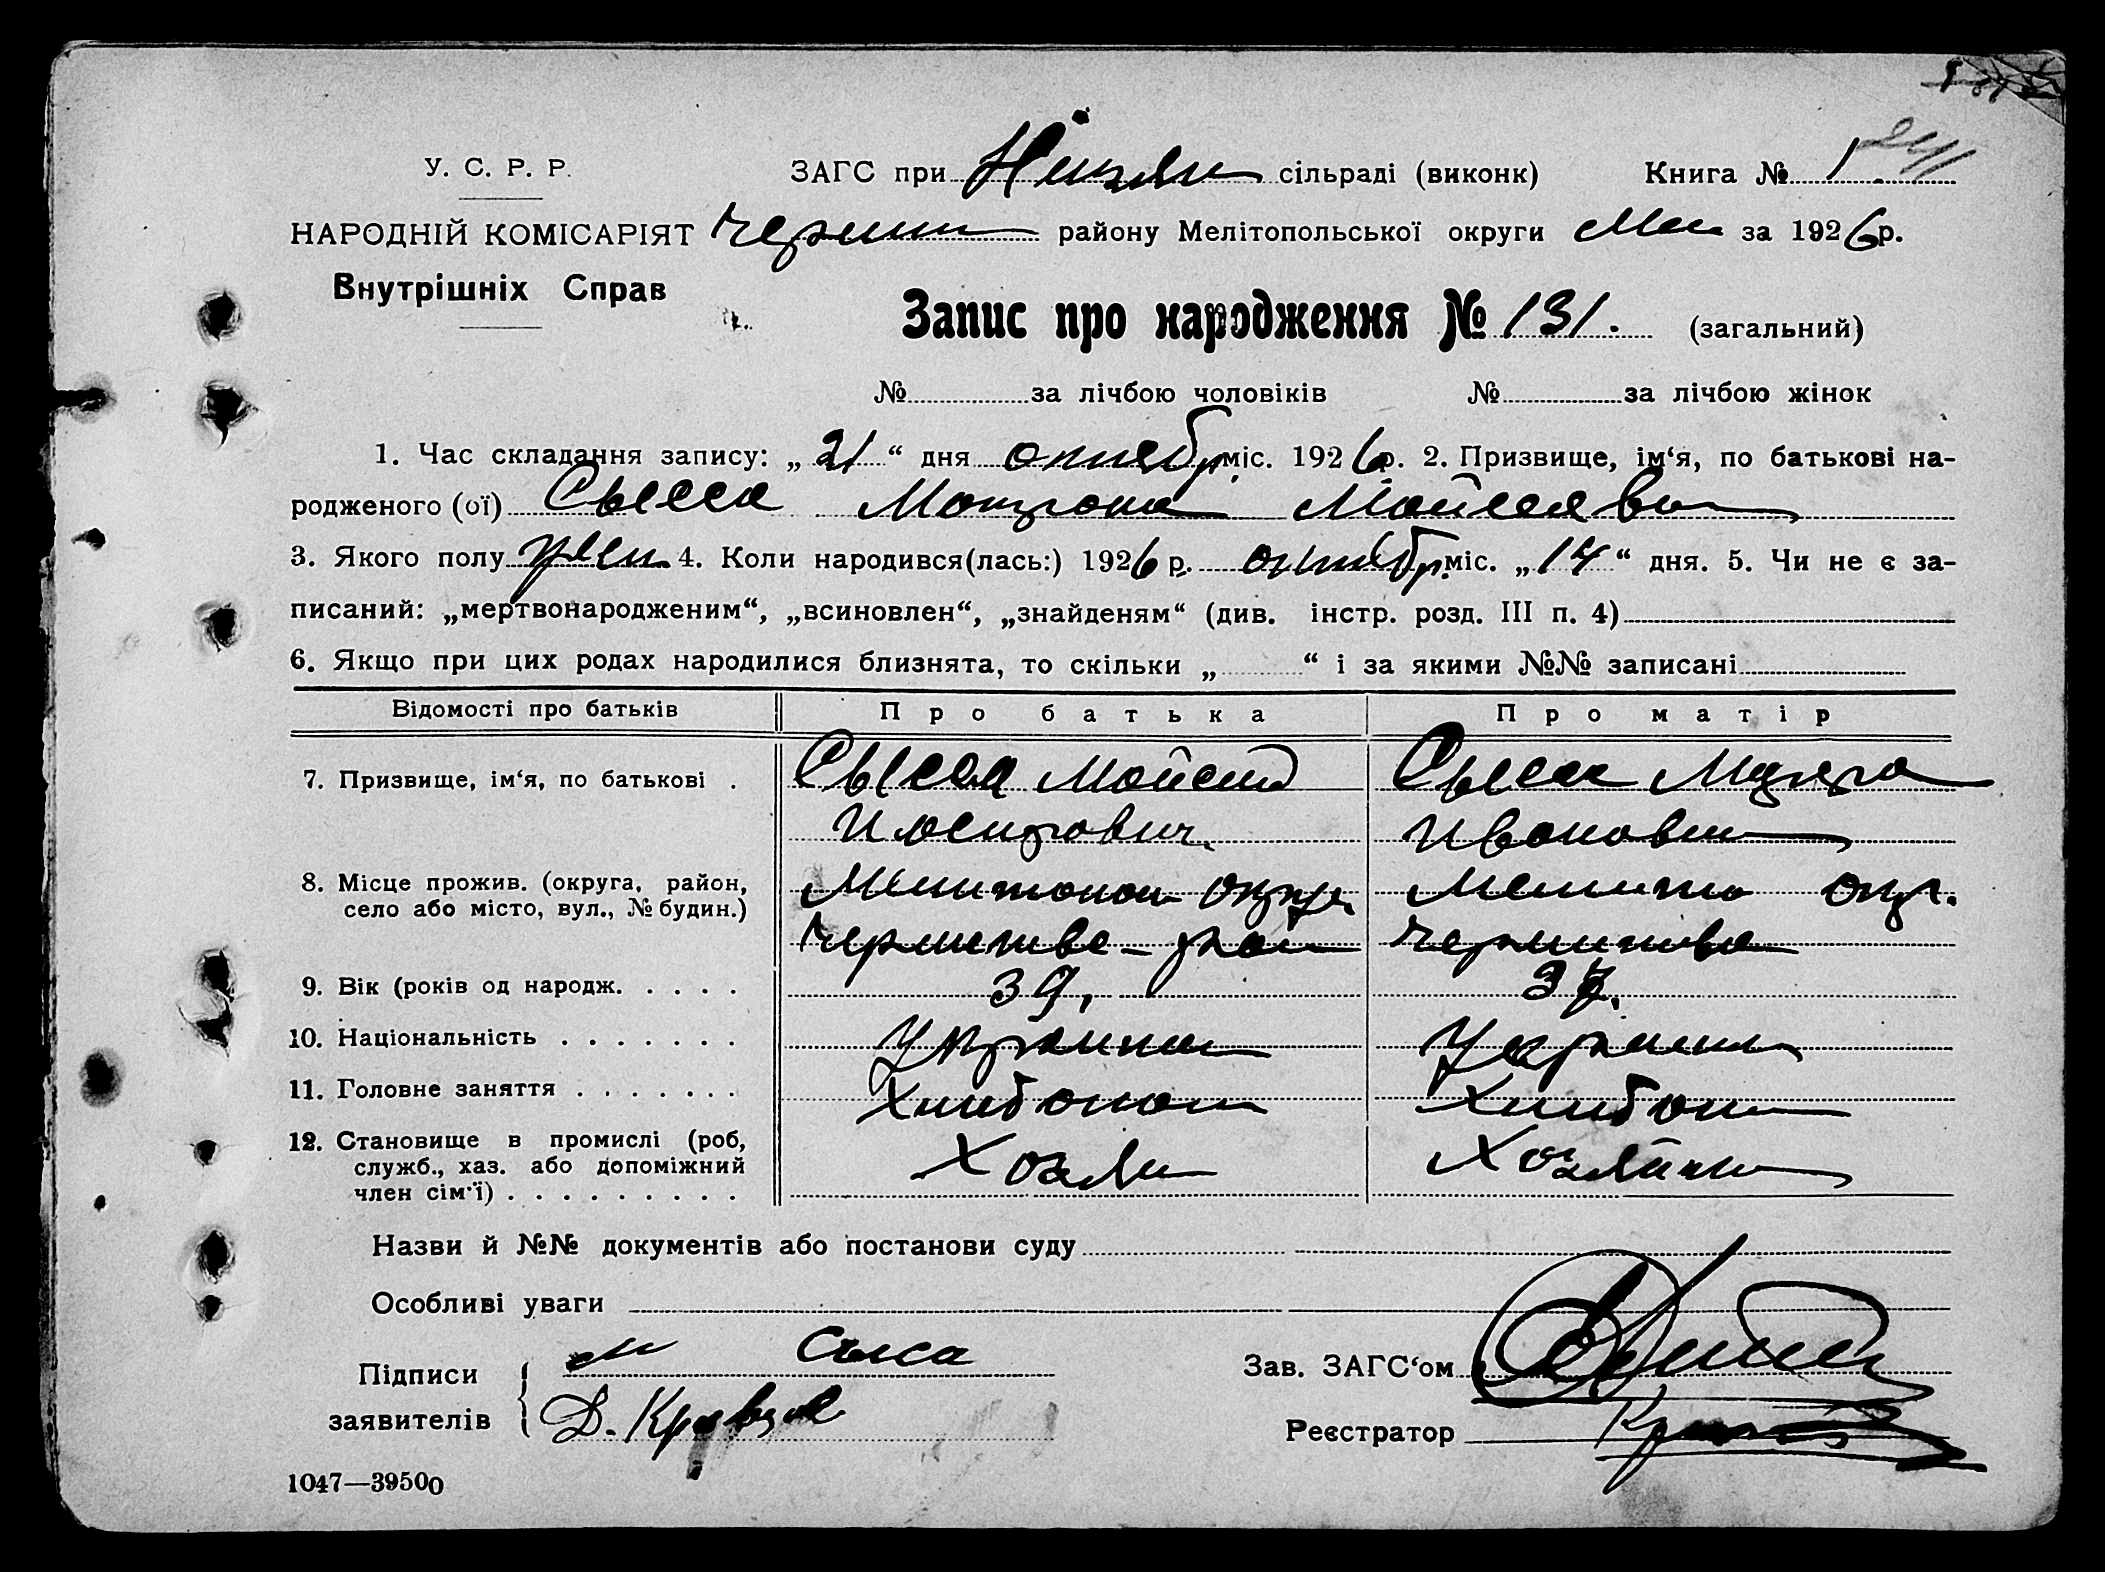 У. С. Р. Р. ЗАГС при сільраді (виконк) Книга № 1
НАРОДНІЙ КОМІСАРІЯТ району Мелітопольської округи за 1926 р.
Внутрішніх Справ
Запис про народження № 131. (загальний)
№ за лічбою чоловіків № за лічбою жінок
1. Час складання запису: „ 21 “ дня октябр міс. 1926 р. 2. Призвище, ім‘я, по батькові на-
родженого (ої) Сысса Матрона Мойсеевн
3. Якого полу жен 4. Коли народився(лась:) 1926 р. октябр міс. „ 14 “ дня. 5. Чи не є за-
писаний: „мертвонародженим“, „всиновлен“, „знайденям“ (див. інстр. розд. III п. 4)
6. Якщо при цих родах народилися близнята, то скільки „ “ і за якими №№ записані
Відомості про батьків Про батька Про матір
7. Призвище, ім‘я, по батькові . Сысса Мойсей Сысса
Иосипович Ивановн
8. Місце прожив. (округа, район,
село або місто, вул., № будин.)
9. Вік (років од народж. . . . . 39.
10. Національність . . . . . . . Украин Украин
11. Головне заняття . . . . . . . Хлебопаш Хлебоп
12. Становище в промислі (роб, Хозяин Хозяйн
служб., хаз. або допоміжний
член сім‘ї) . . . . . . . . .
Назви й №№ документів або постанови суду
Особливі уваги
Підписи Сыса Зав. ЗАГС‘ом
заявителів Д. Кравцов Реєстратор
1047—39500